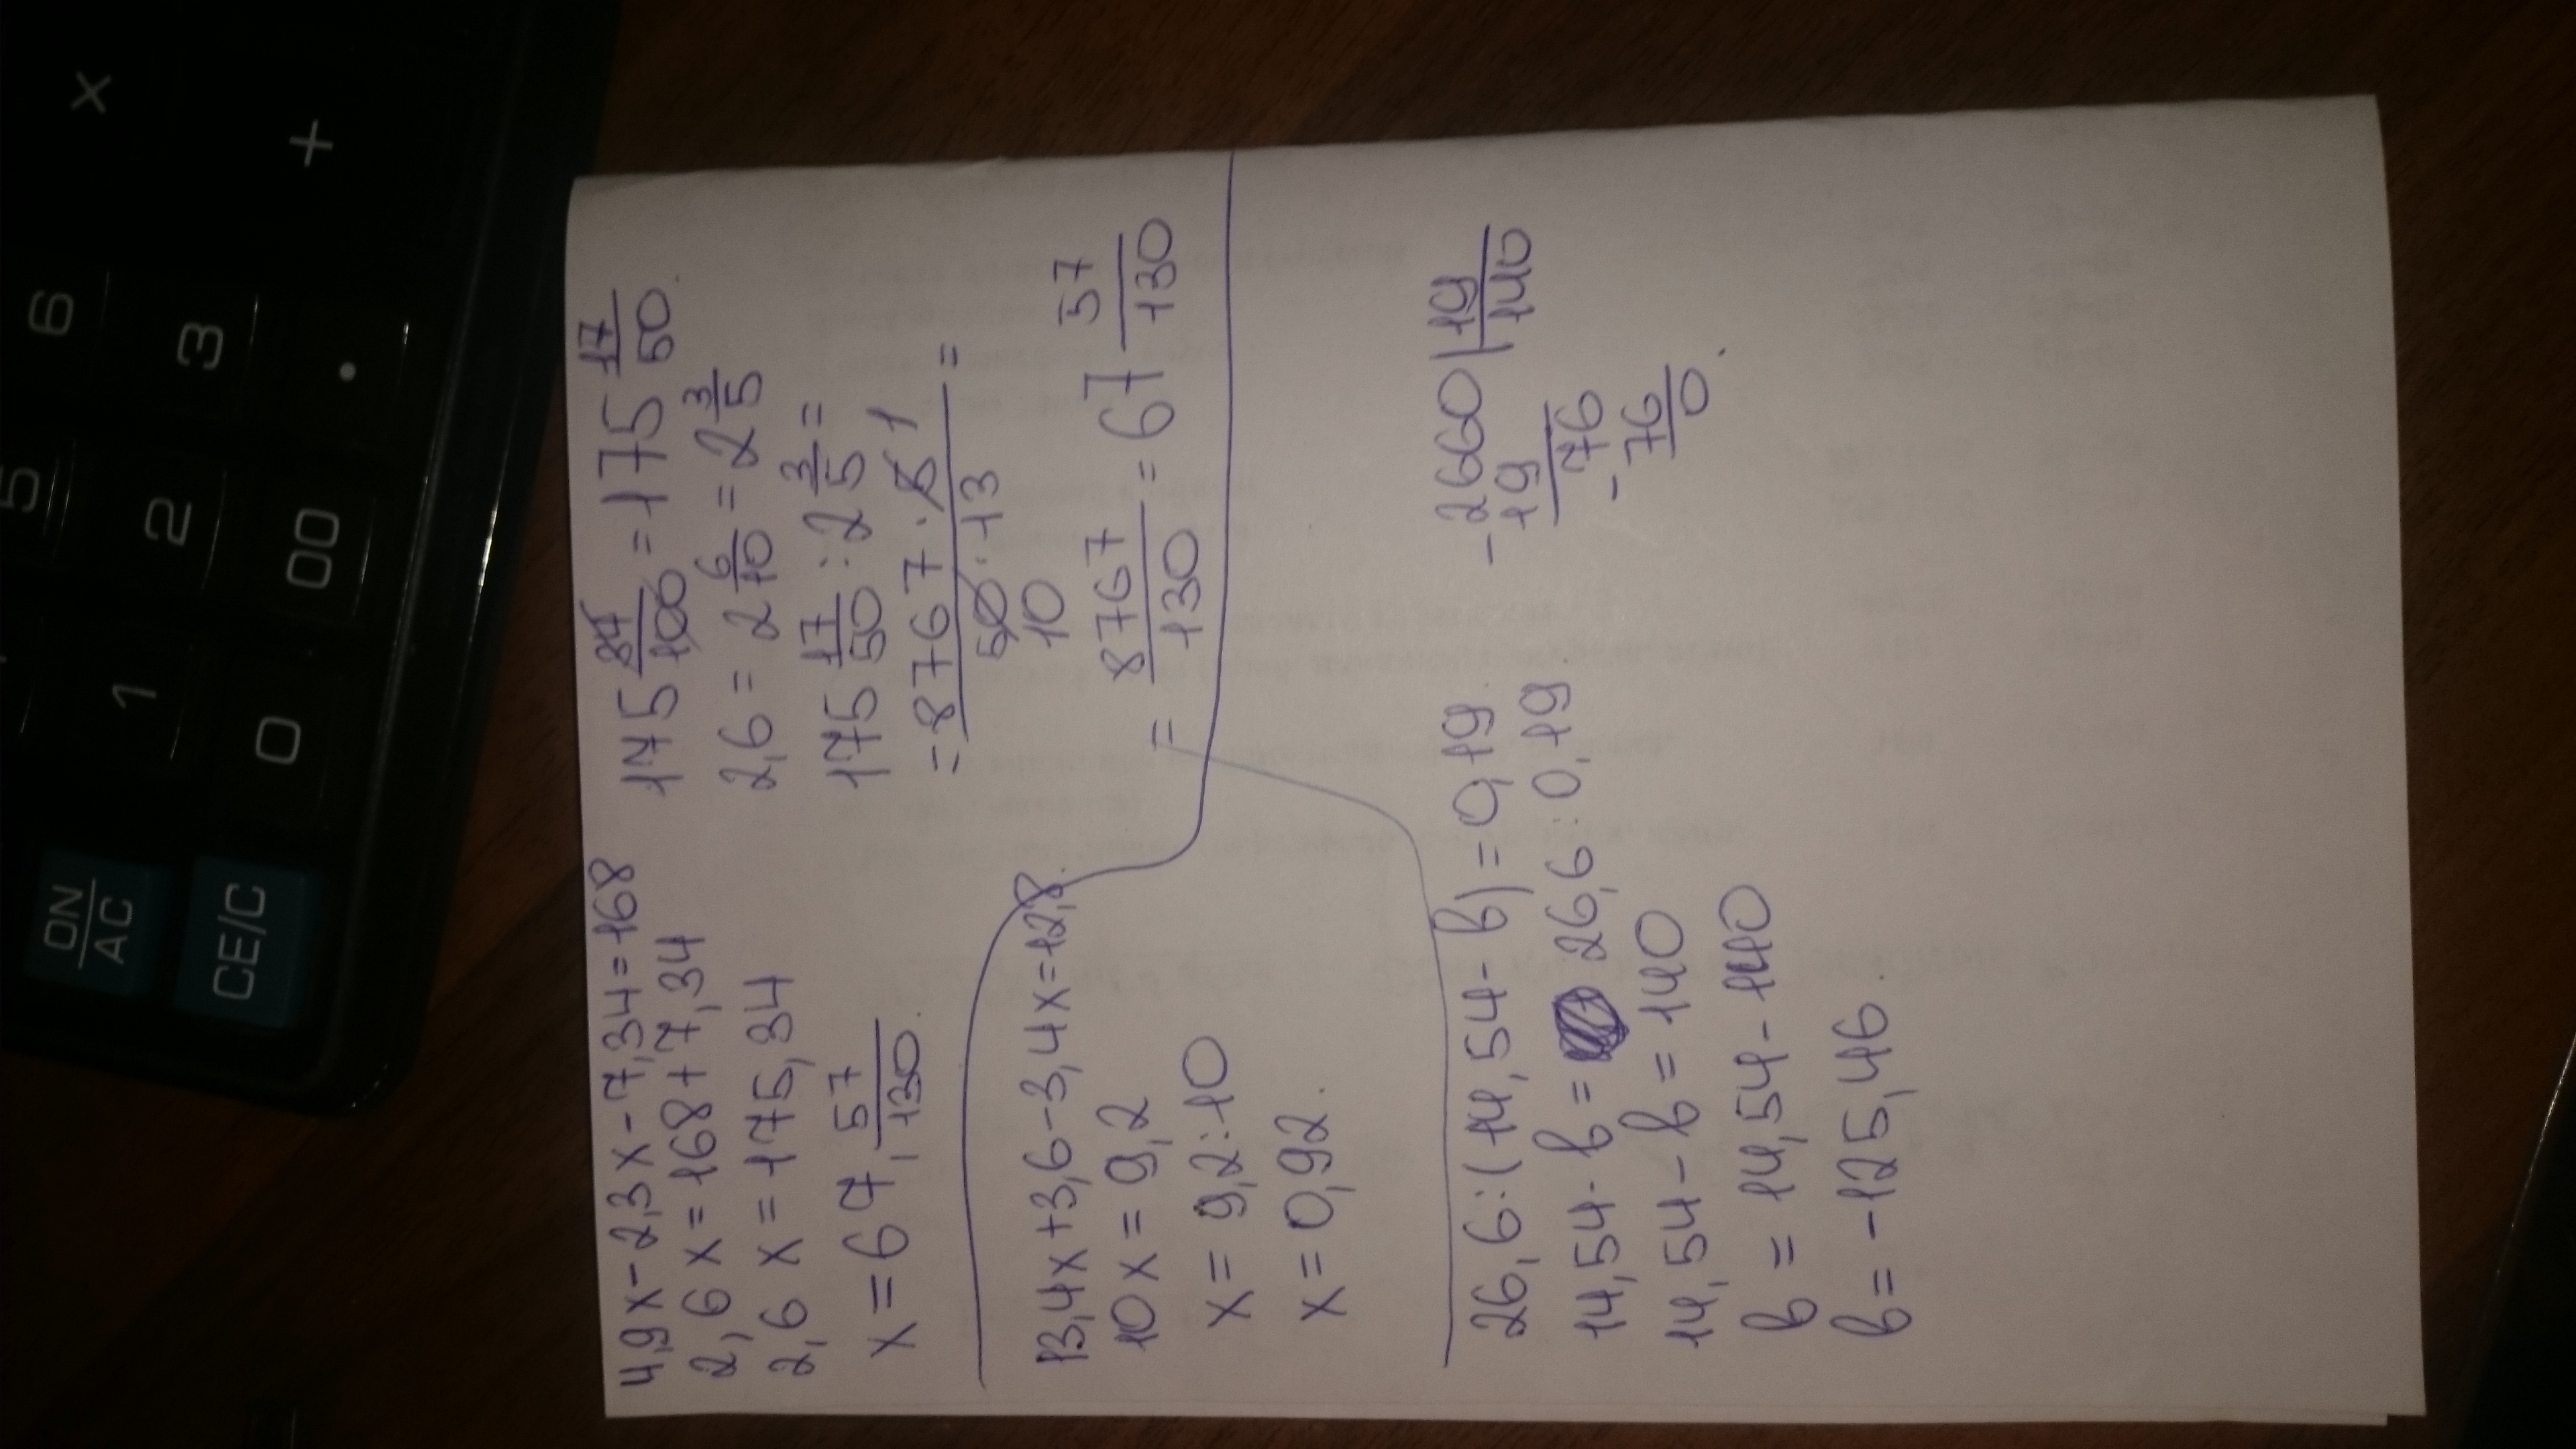 4,9x-2,3x-7,34=168
2,6x=168+7,34
2,6x=175,34
x=67, 57/130.
175 34/100 = 175 17/50.
2,6 = 2 6/10 = 2 3/5
175 17/50 : 2 3/5 =
= 8767·5 1 / 50·13 =
10
= 8767/130 = 67 57/130
13,4x+3,6-3,4x=12,8.
10x=9,2
x=9,2:10
x=0,92.
26,6:(14,54-b)=0,19.
14,54-b= 26,6:0,19.
14,54-b=140
b=14,54-140
b=-125,46.
-2660|19
19 140
76
-76
0.
x
+
6
5
3
2
1
.
00
0
ON
AC
CE/C